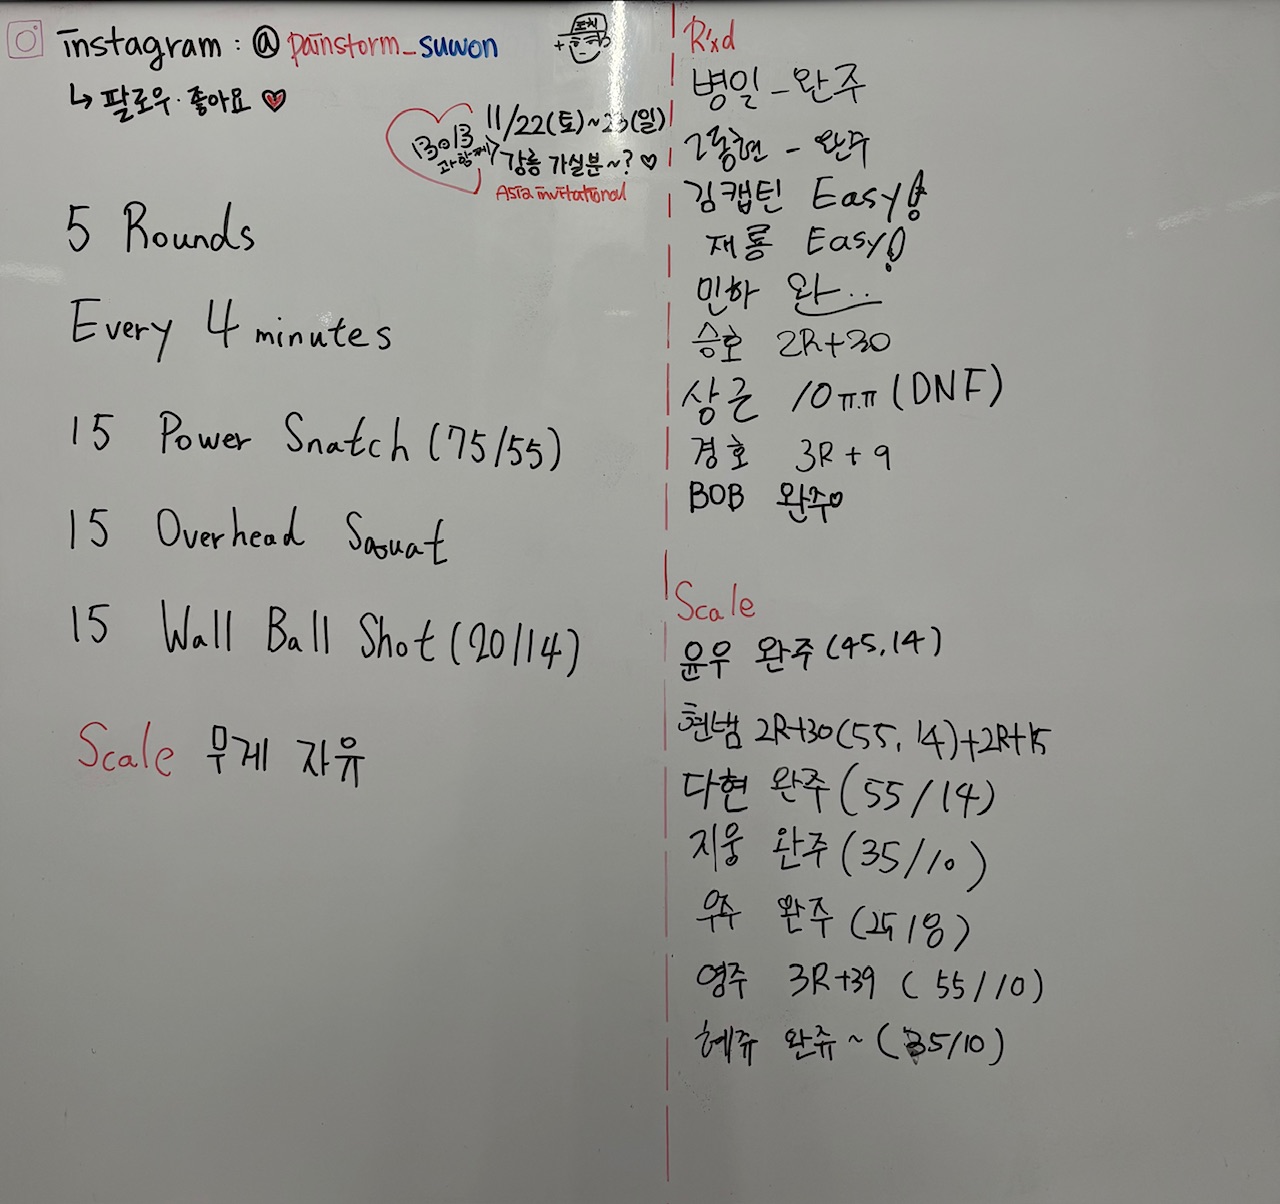 instagram : @ painstorm_suwon
↳ 팔로우·좋아요 ♥
코치
11/22(토)~23(일)
과 함께
강릉 가실분~? ♡
Asia invitational
5 Rounds
Every 4 minutes
15 Power Snatch (75/55)
15 Overhead Squat
15 Wall Ball Shot (20/14)
Scale 무게 자유
R'xd
병일 - 완주
동현 - 완주
김캡틴 Easy!
재룡 Easy!
민하 완...
승호 2R+30
상근 10ㅠㅠ (DNF)
경호 3R + 9
BOB 완주♡
Scale
윤우 완주 (45, 14)
현범 2R+30 (55, 14)+2R+15
다현 완주 (55/14)
지웅 완주 (35/10)
우주 완주
영주 3R+39 (55/10)
혜쥬 완쥬~ (35/10)